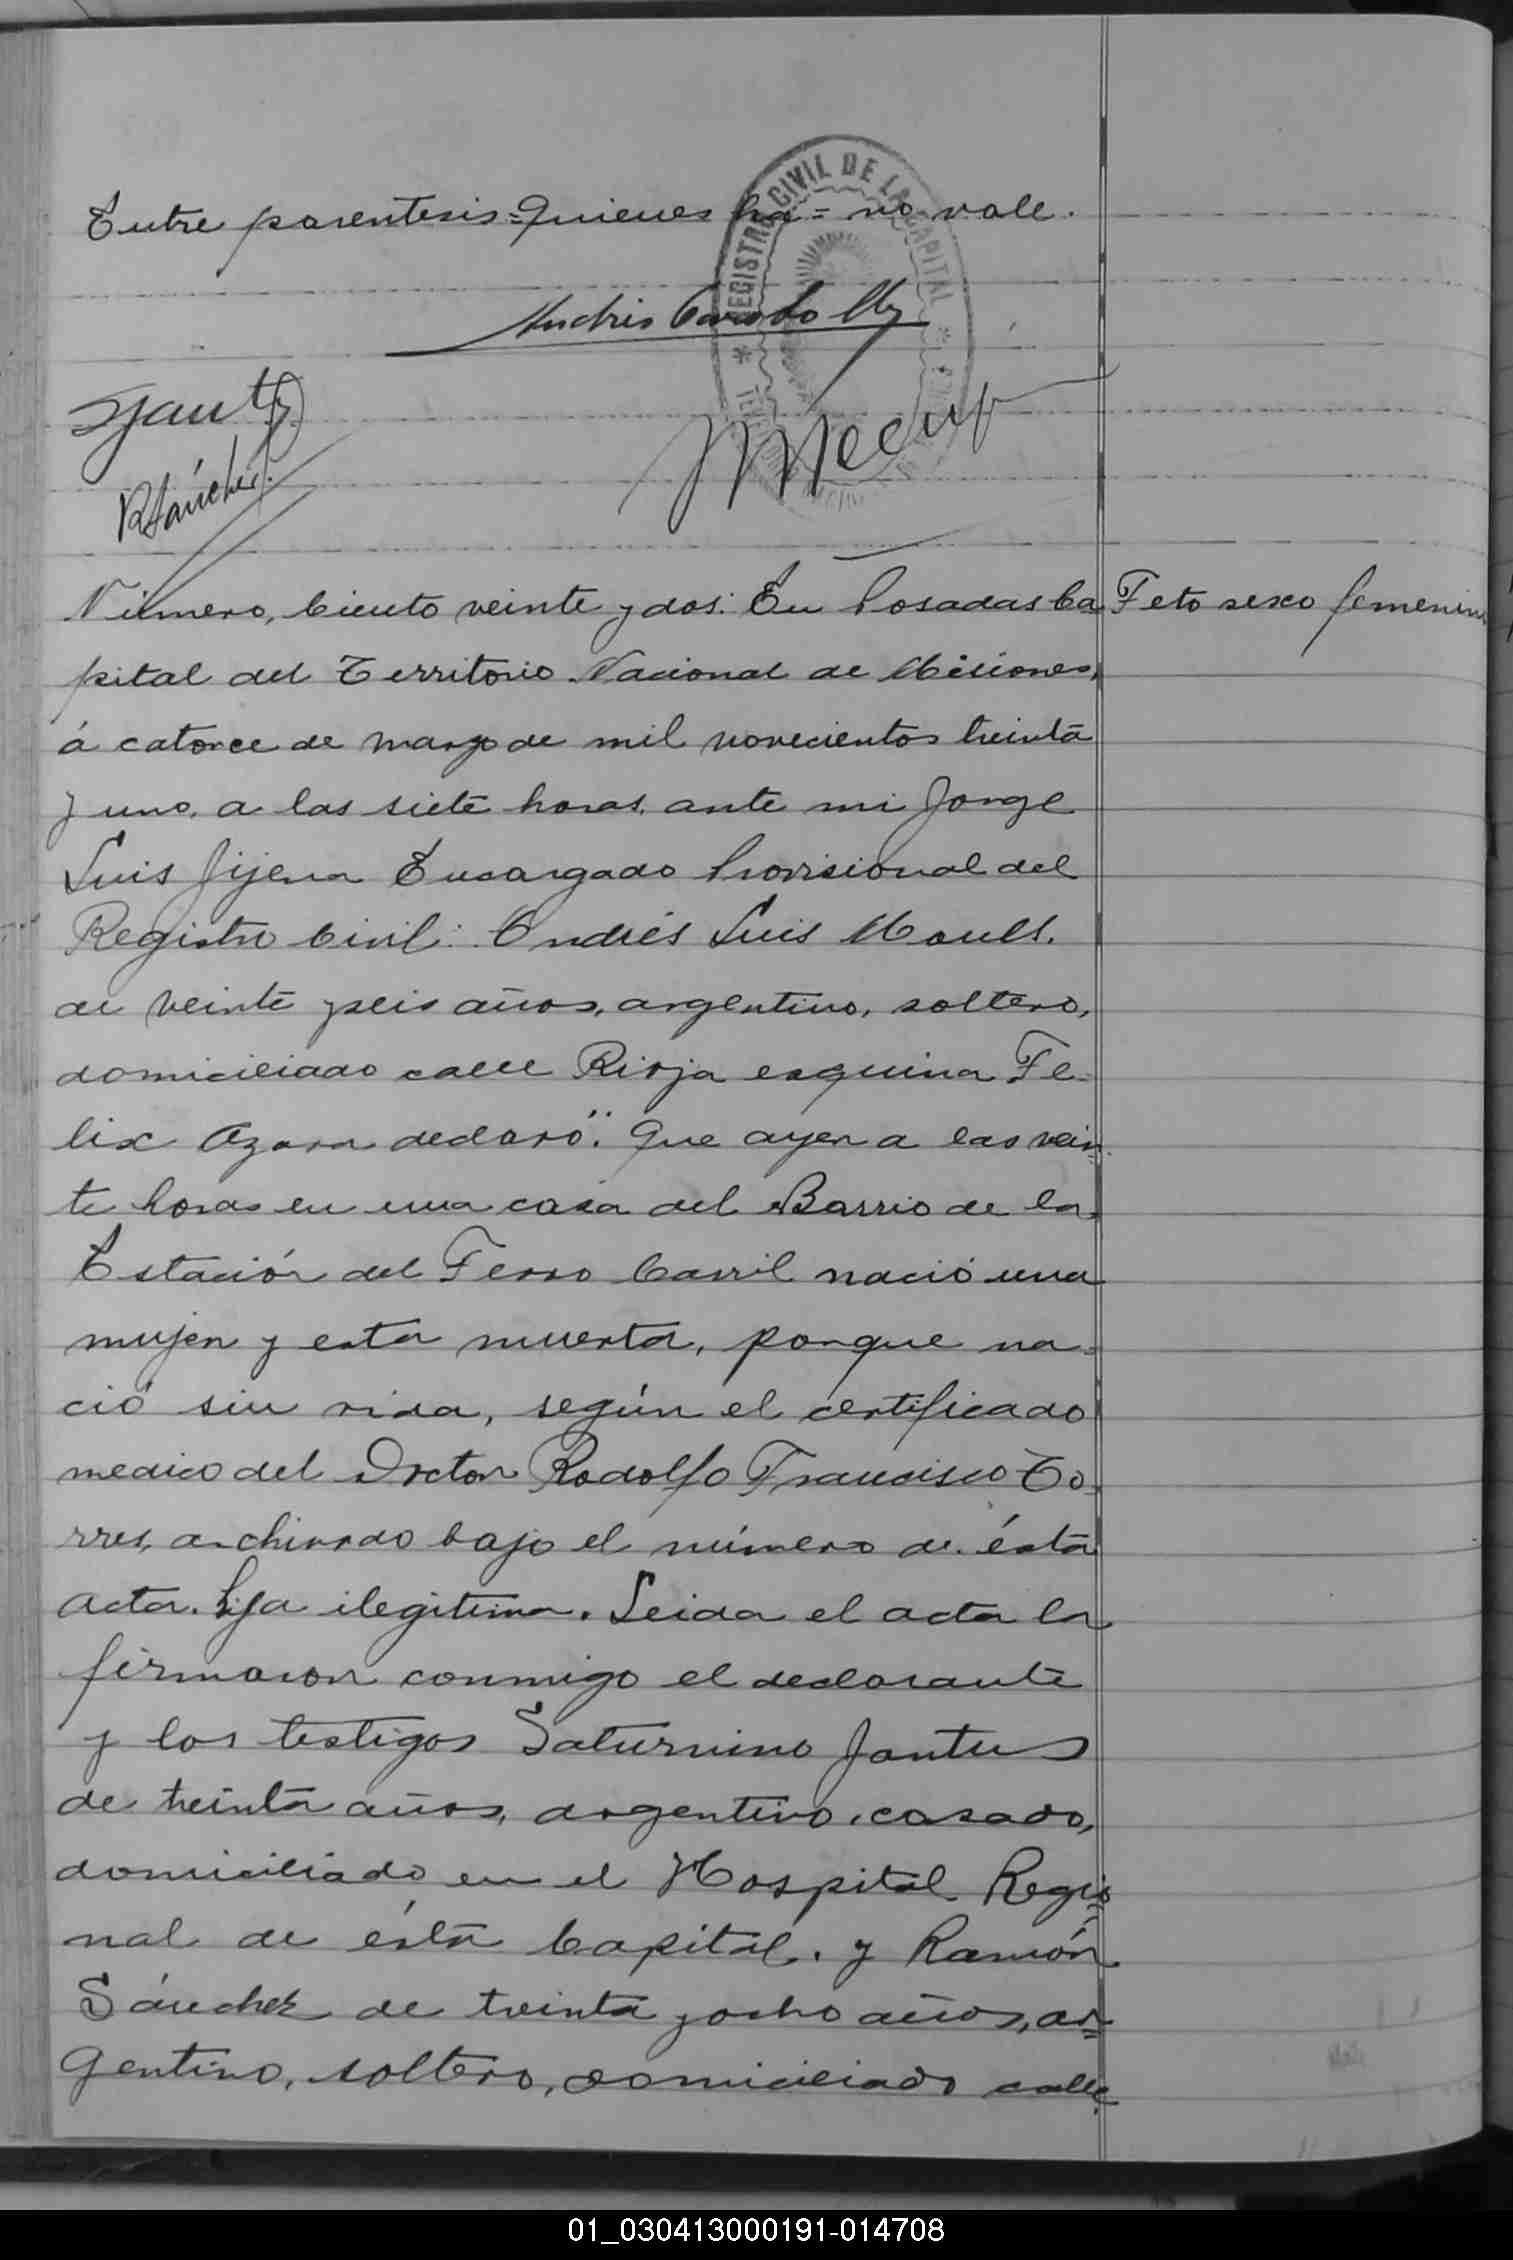 Entre parentesis = Quienes ha = no vale.
REGISTRO CIVIL DE LA CAPITAL
Andrés
RSánchez
Número, Ciento veinte y dos: En Posadas Ca
Feto sexo femenino
pital del Territorio Nacional de Misiones,
á catorce de marzo de mil novecientos treinta
y uno, a las siete horas, ante mi Jorge
Luis Jijena Encargado Provisional del
Registro Civil: Andrés Luis
de veinte y seis años, argentino, soltero,
domiciliado calle Rioja esquina Fe-
lix Azara declaró: Que ayer a las vein
te horas en una casa del Barrio de la
Estación del Ferro Carril nació una
mujer y esta muerta, porque na-
ció sin vida, según el certificado
medico del Doctor Rodolfo Francisco To-
rres, archivado bajo el número de ésta
acta. Hija ilegitima. Leida el acta la
firmaron conmigo el declarante
y los testigos Saturnino Jantus
de treinta años, argentino, casado,
domiciliado en el Hospital Regio=
nal de ésta Capital, y Ramón
Sánchez de treinta y ocho años, ar=
gentino, soltero, domiciliado calle
01_030413000191-014708